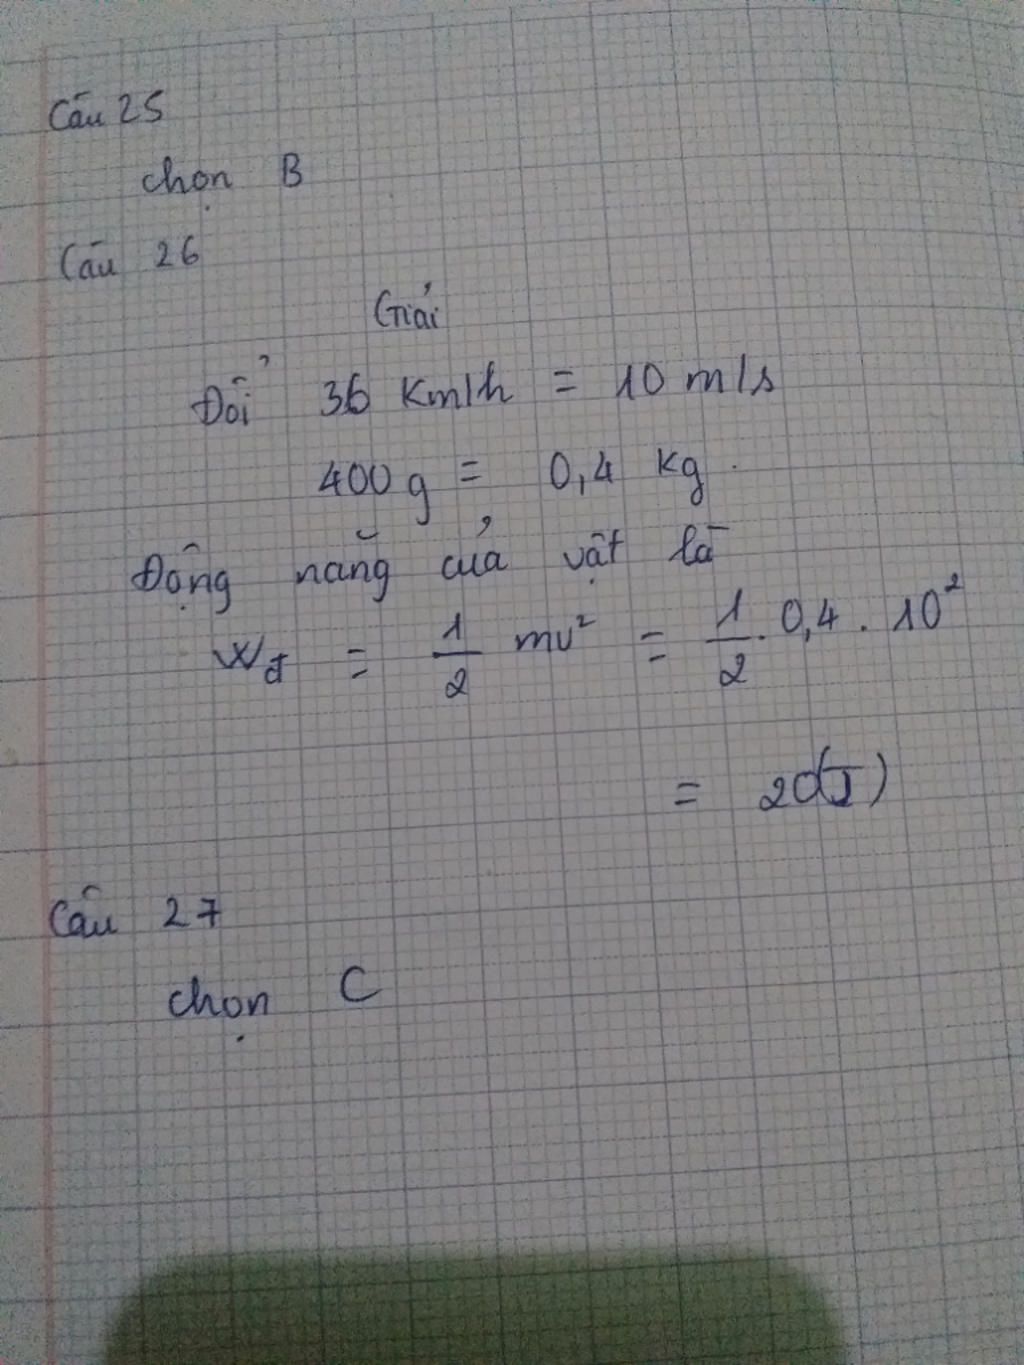 Câu 25
chọn B
Câu 26
Giải
Đổi 36 Km/h = 10 m/s
400g = 0,4 kg.
Động năng của vật là
Wđ = 1/2 mv² = 1/2 . 0,4 . 10²
= 20(J)
Câu 27
chọn C